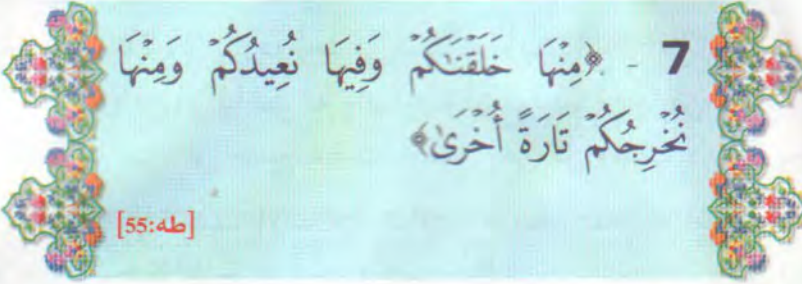 7 - ﴿مِنْهَا خَلَقْنَـٰكُمْ وَفِيهَا نُعِيدُكُمْ وَمِنْهَا
نُخْرِجُكُمْ تَارَةً أُخْرَىٰ﴾
[طه:55]